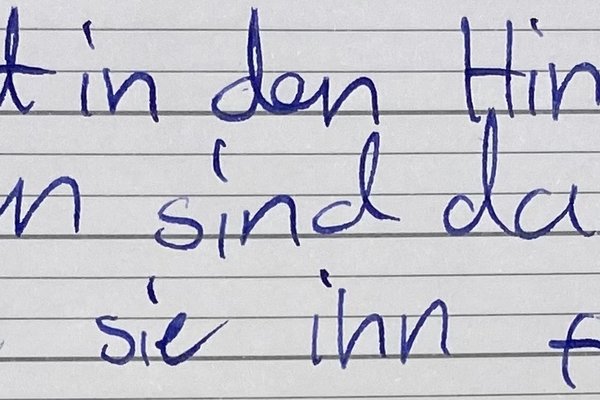 t in den Hin
n sind da
sie ihn f